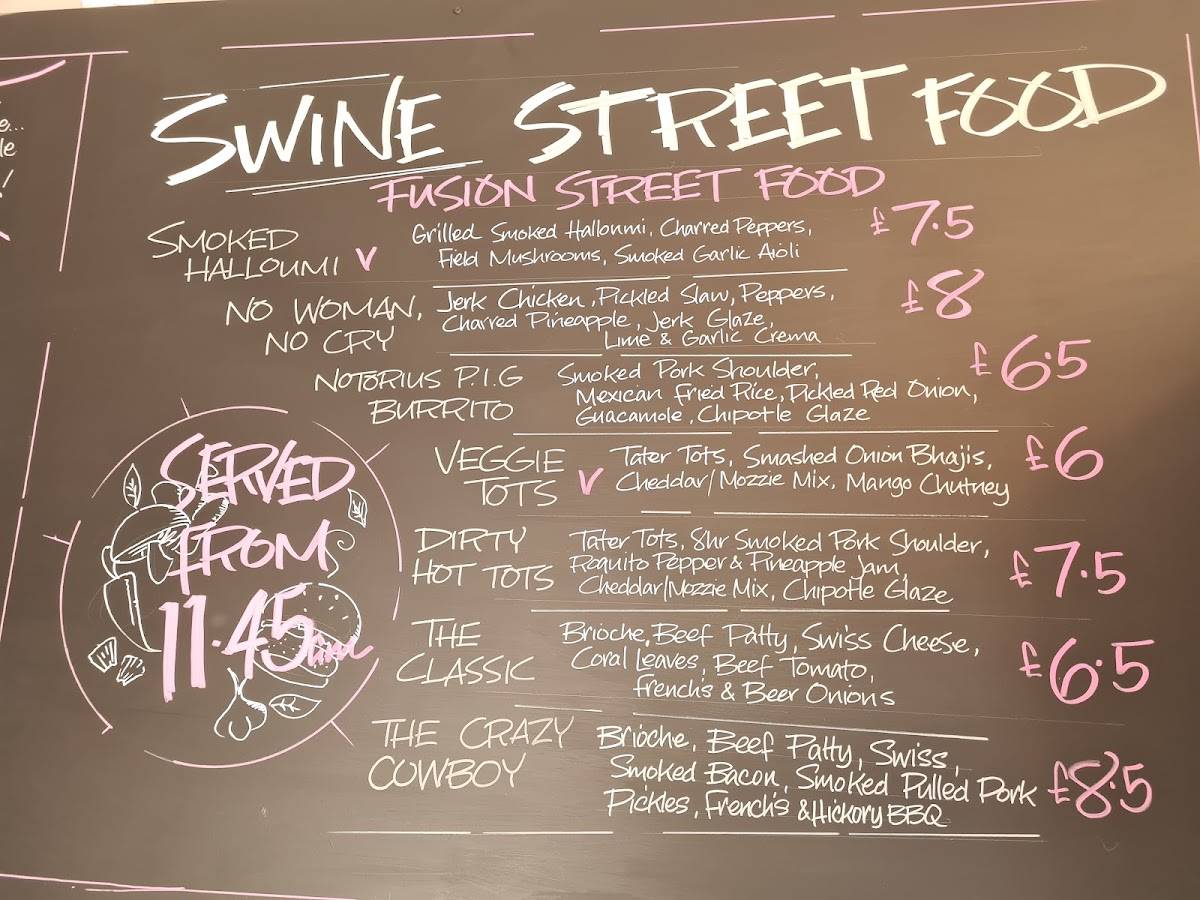 e...
le
!
SWINE STREET FOOD
FUSION STREET FOOD
SMOKED
HALLOUMI V
Grilled Smoked Halloumi, Charred Peppers,
Field Mushrooms, Smoked Garlic Aioli
£7.5
NO WOMAN,
NO CRY
Jerk Chicken, Pickled Slaw, Peppers,
Charred Pineapple, Jerk Glaze,
Lime & Garlic Crema
£8
NOTORIUS P.I.G
BURRITO
Smoked Pork Shoulder,
Mexican Fried Rice, Pickled Red Onion,
Guacamole, Chipotle Glaze
£6.5
VEGGIE
TOTS V
Tater Tots, Smashed Onion Bhajis,
Cheddar/Mozzie Mix, Mango Chutney
£6
DIRTY
HOT TOTS
Tater Tots, 8hr Smoked Pork Shoulder,
Roquito Pepper & Pineapple Jam,
Cheddar/Mozzie Mix, Chipotle Glaze
£7.5
THE
CLASSIC
Brioche, Beef Patty, Swiss Cheese,
Coral Leaves, Beef Tomato,
French's & Beer Onions
£6.5
THE CRAZY
COWBOY
Brioche, Beef Patty, Swiss,
Smoked Bacon, Smoked Pulled Pork
Pickles, French's & Hickory BBQ
£8.5
SERVED
FROM
11.45am